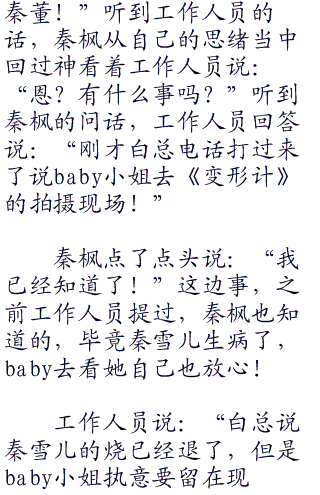 秦董！”听到工作人员的
话，秦枫从自己的思绪当中
回过神看着工作人员说：
“恩？有什么事吗？”听到
秦枫的问话，工作人员回答
说：“刚才白总电话打过来
了说baby小姐去《变形计》
的拍摄现场！”
秦枫点了点头说：“我
已经知道了！”这边事，之
前工作人员提过，秦枫也知
道的，毕竟秦雪儿生病了，
baby去看她自己也放心！
工作人员说：“白总说
秦雪儿的烧已经退了，但是
baby小姐执意要留在现